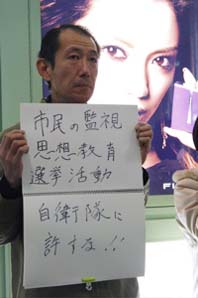 市民の監視
思想教育
選挙活動
自衛隊に
許すな!!